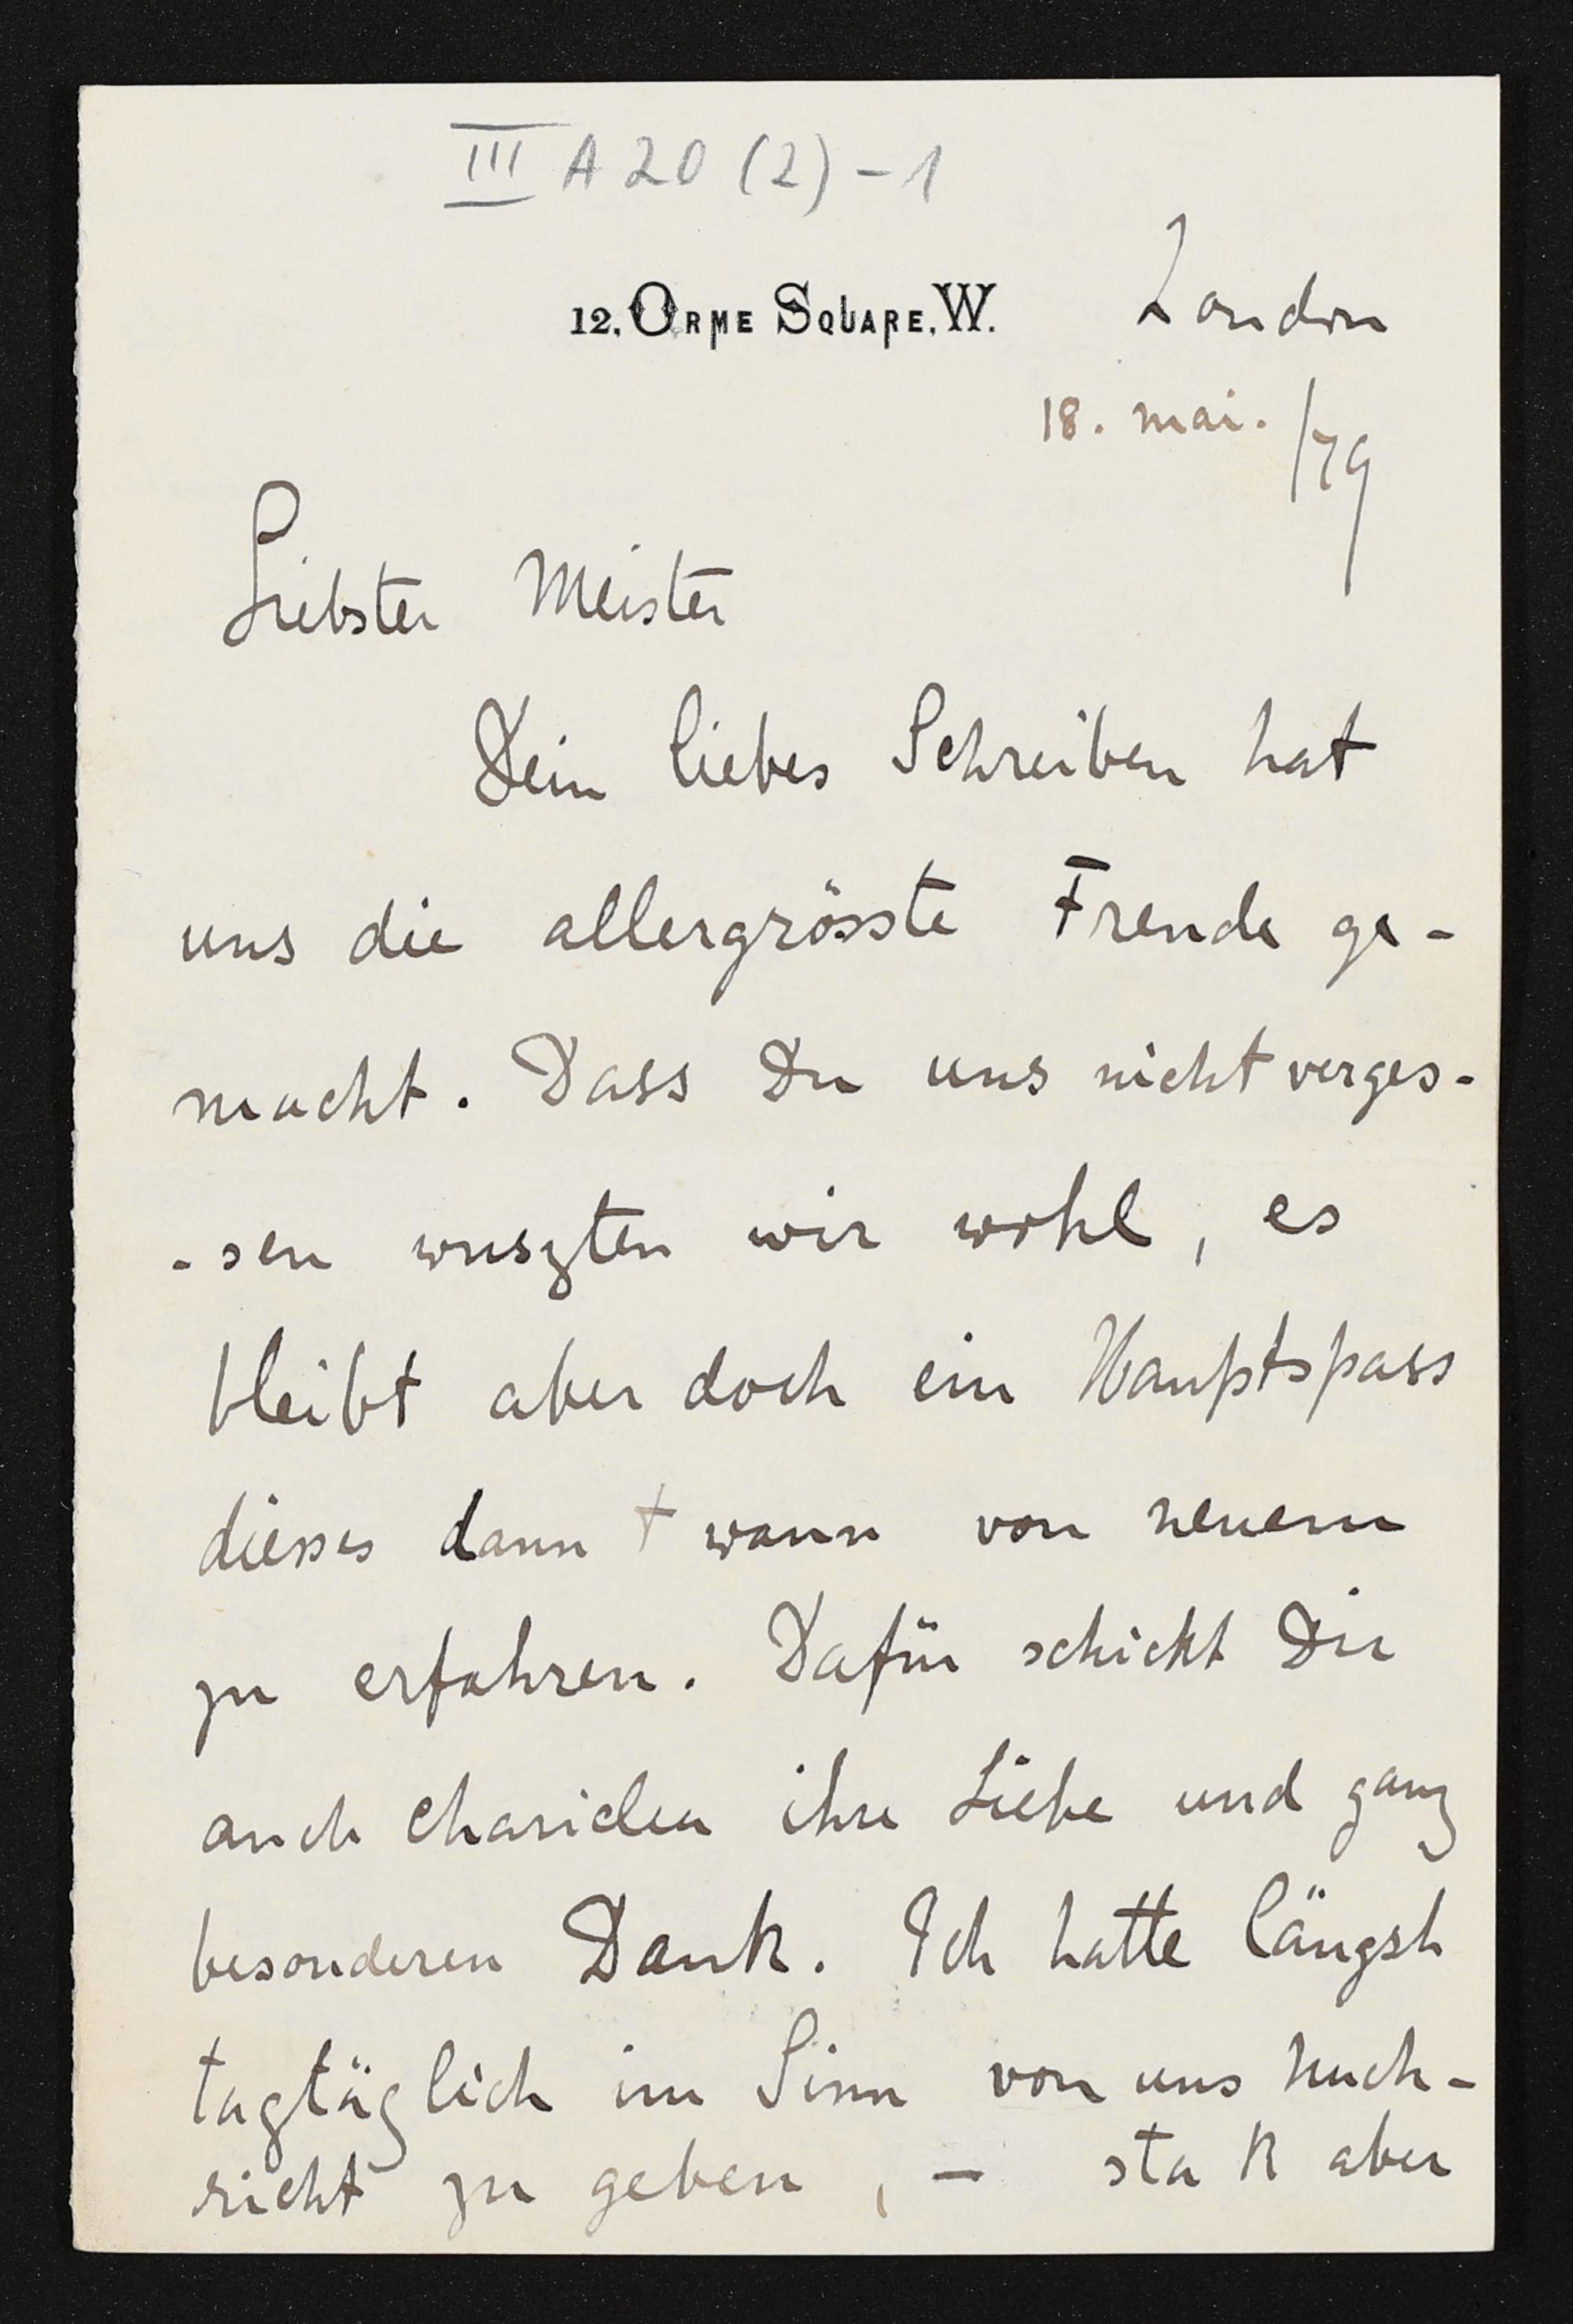 III A 20 (2) - 1
12, ORME SQUARE, W. London
18. mai. /79
Liebster Meister
Dein liebes Schreiben hat
uns die allergrösste Freude ge-
macht. Dass Du uns nicht verges-
-sen wuszten wir wohl, es
bleibt aber doch ein Hauptspass
dieses dann + wann von neuem
zu erfahren. Dafür schickt Dir
auch Chariclea ihre Liebe und ganz
besonderen Dank. Ich hatte längst
tagtäglich im Sinn von uns Nach-
richt zu geben, - stak aber